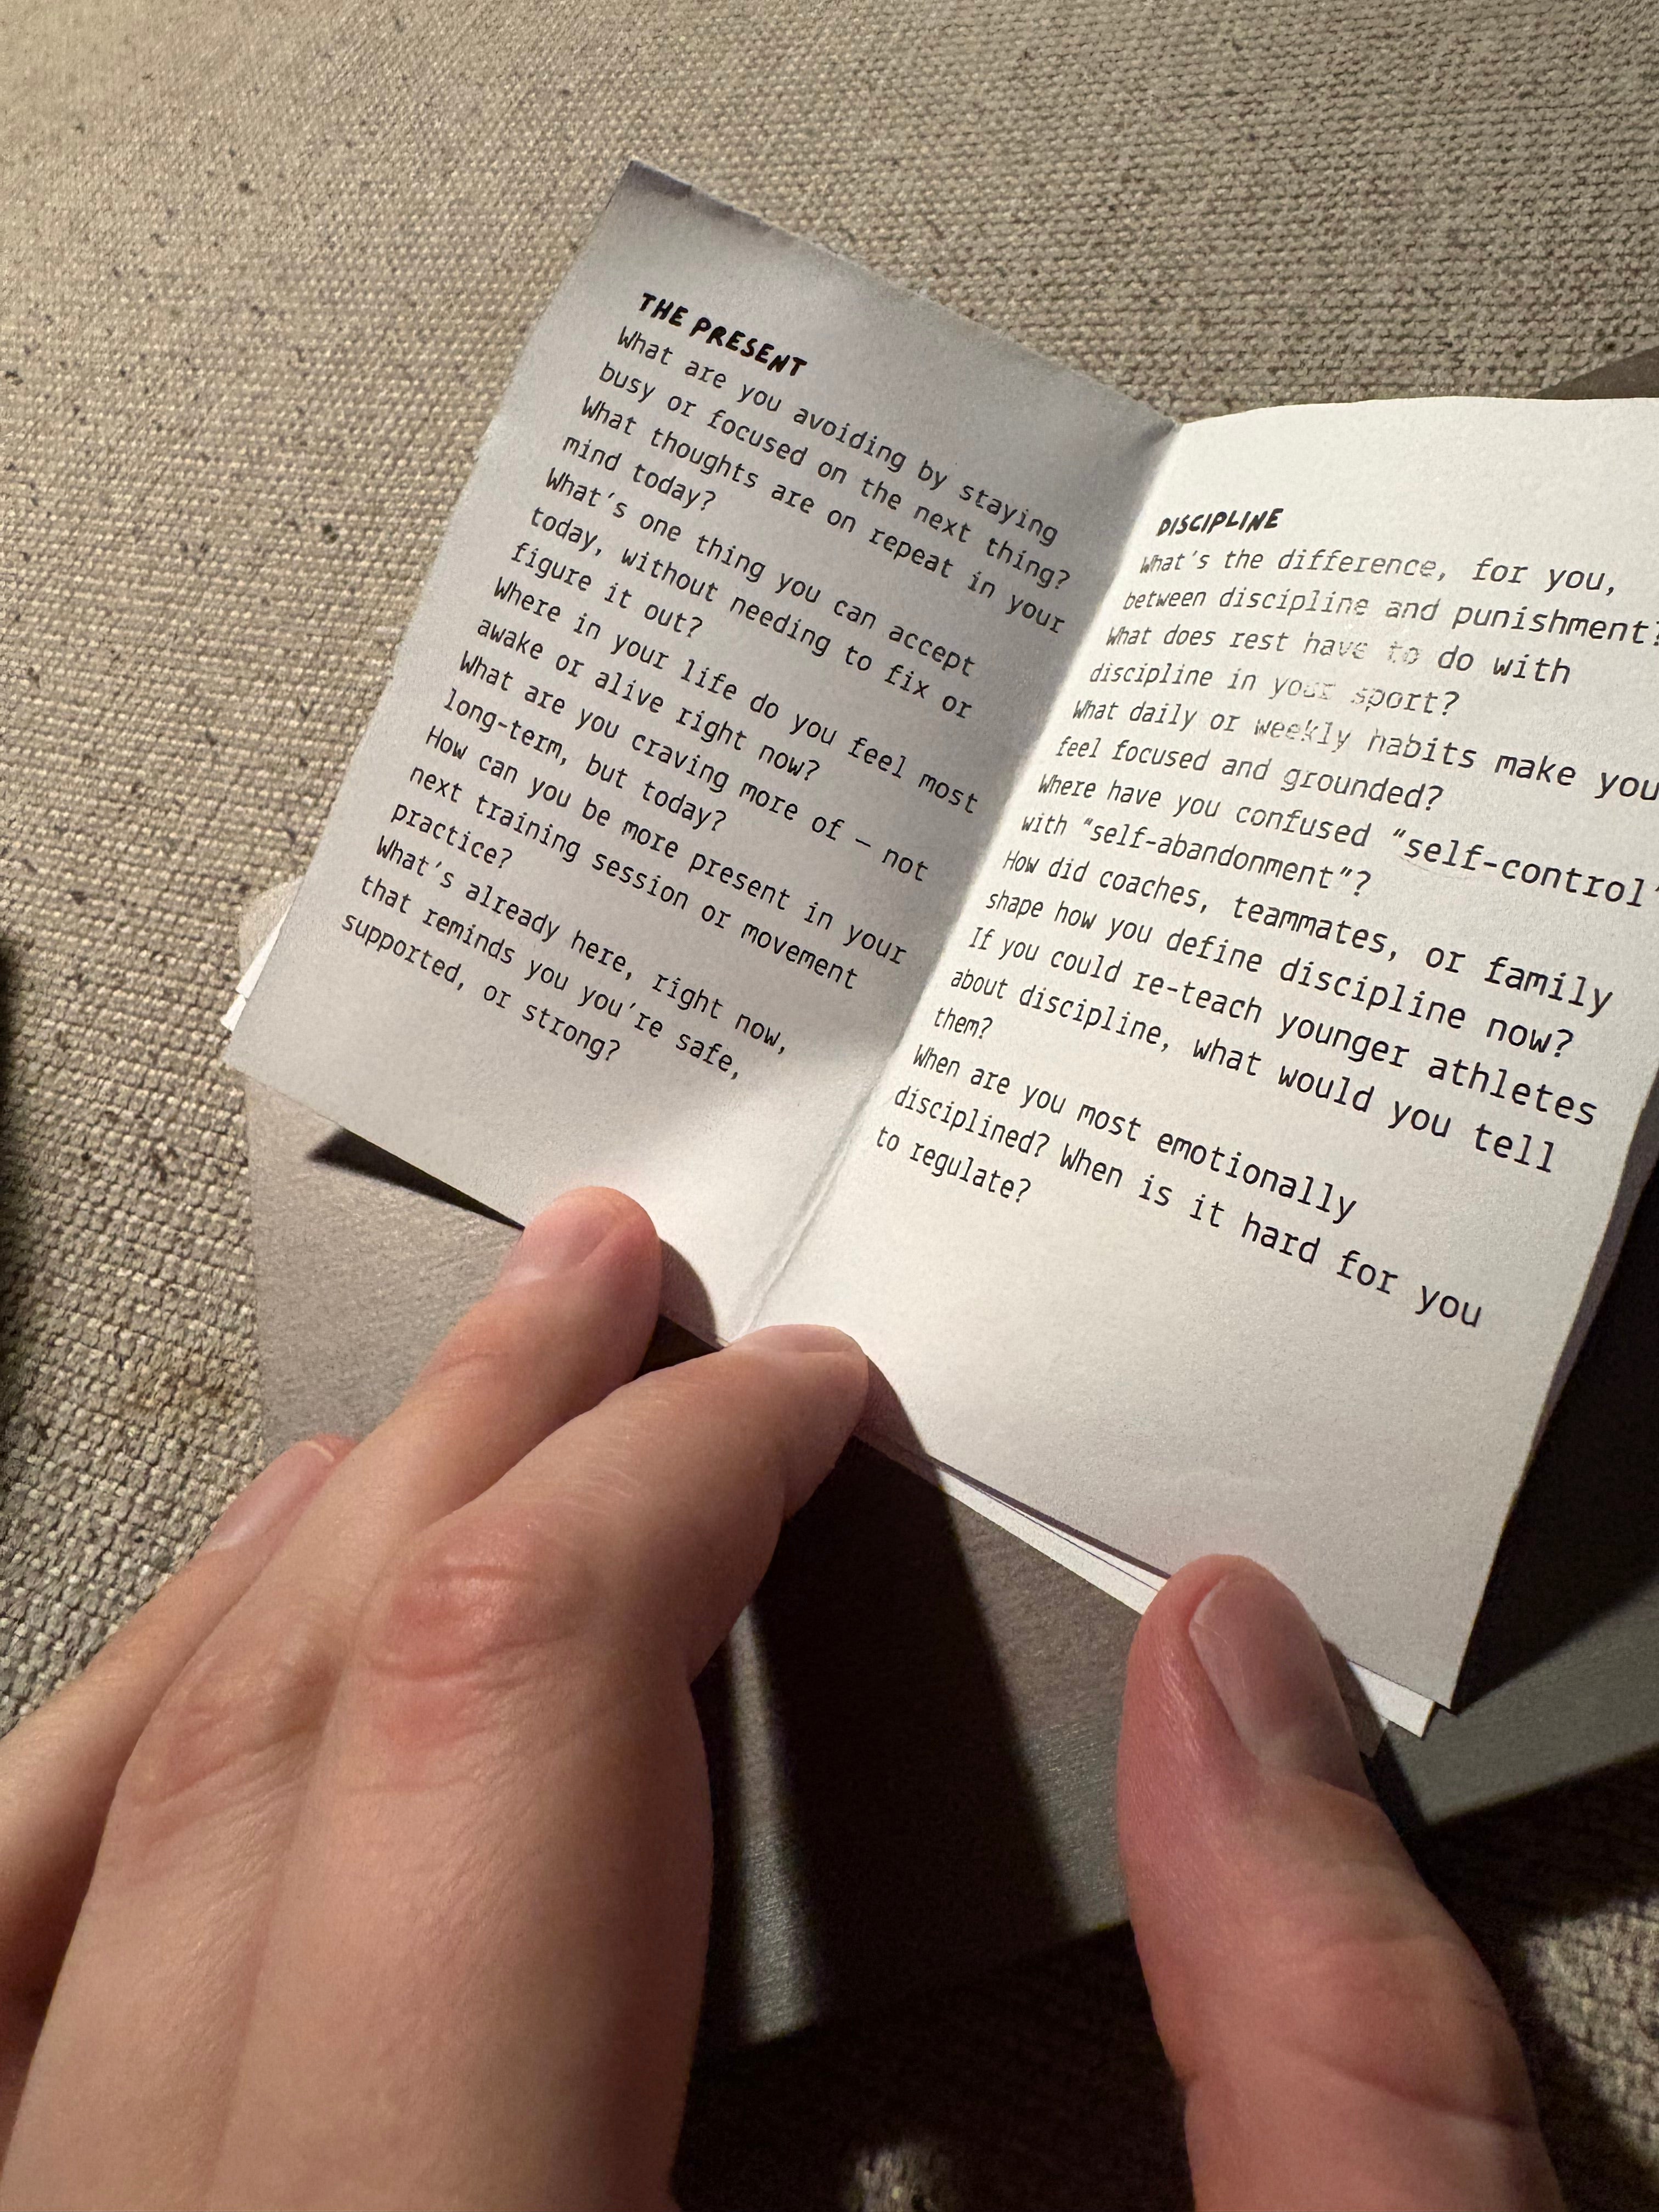 THE PRESENT
What are you avoiding by staying
busy or focused on the next thing?
What thoughts are on repeat in your
mind today?
What's one thing you can accept
today, without needing to fix or
figure it out?
Where in your life do you feel most
awake or alive right now?
What are you craving more of — not
long-term, but today?
How can you be more present in your
next training session or movement
practice?
What's already here, right now,
that reminds you you're safe,
supported, or strong?
DISCIPLINE
What's the difference, for you,
between discipline and punishment?
What does rest have to do with
discipline in your sport?
What daily or weekly habits make you
feel focused and grounded?
Where have you confused “self-control”
with “self-abandonment”?
How did coaches, teammates, or family
shape how you define discipline now?
If you could re-teach younger athletes
about discipline, what would you tell
them?
When are you most emotionally
disciplined? When is it hard for you
to regulate?